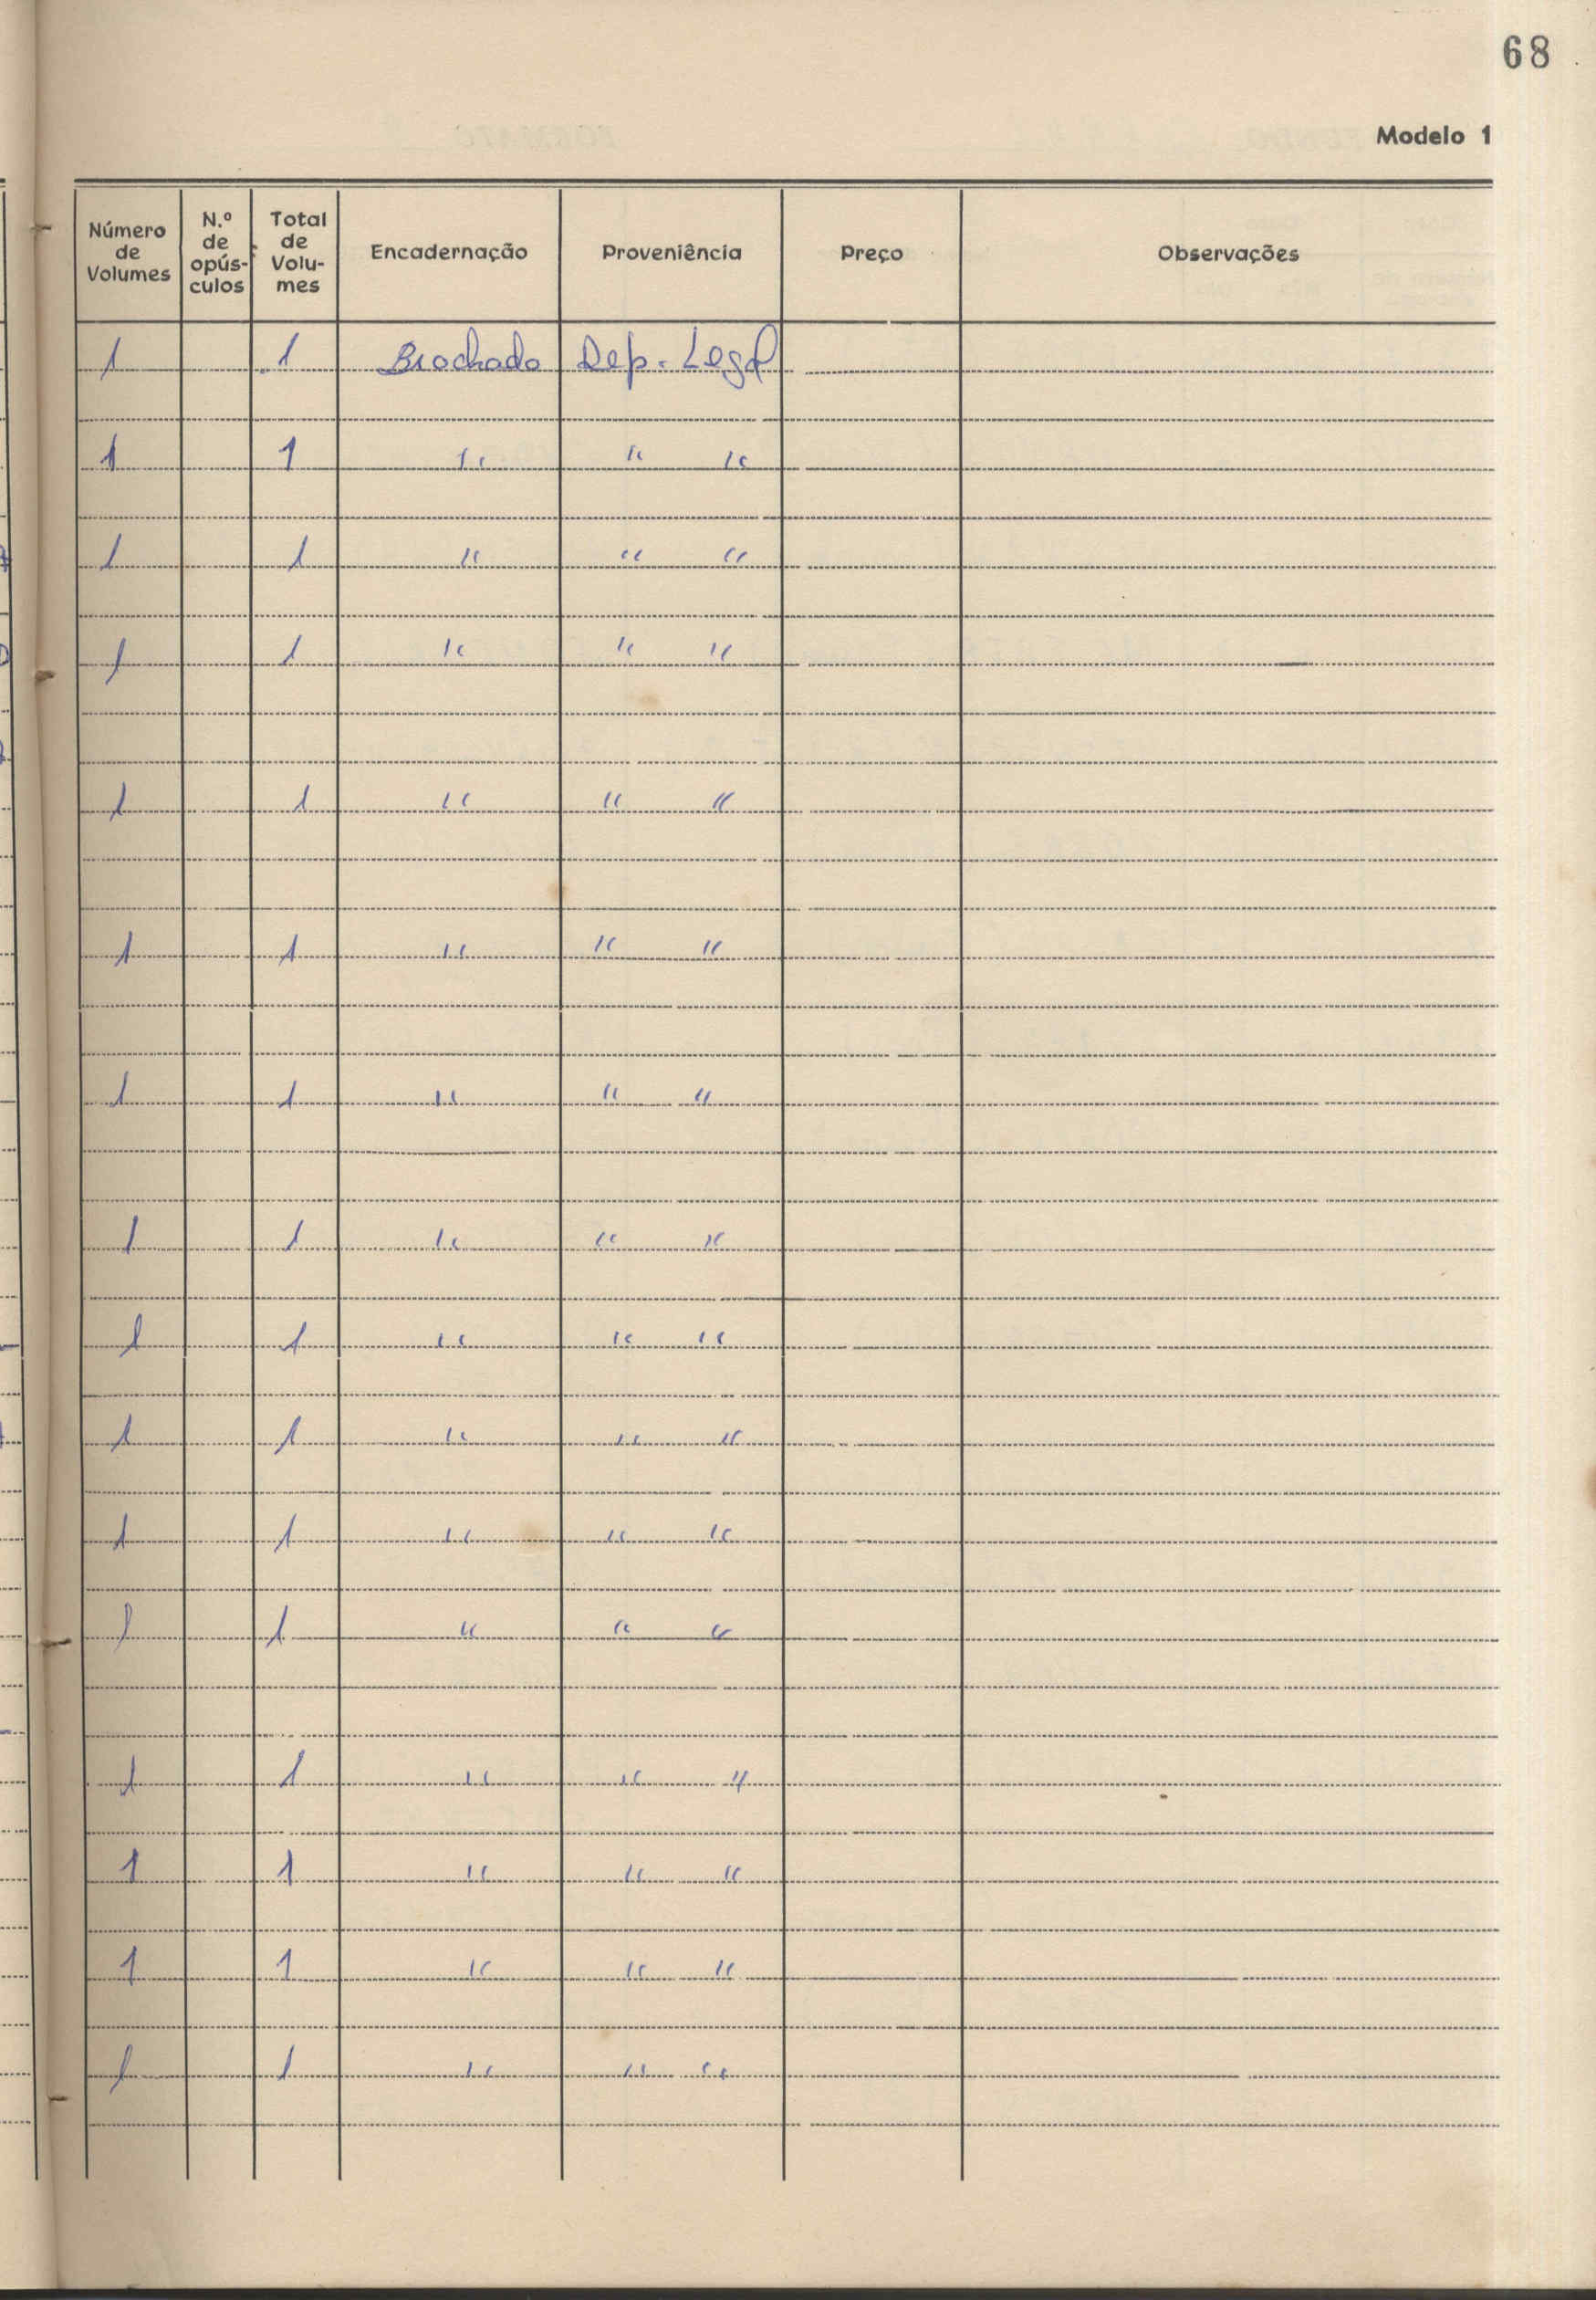 68
Modelo 1
Número de Volumes | N.º de opús-culos | Total de Volu-mes | Encadernação | Proveniência | Preço | Observações
1 1 Brochado Dep. Legal
1 1 " " "
1 1 " " "
1 1 " " "
1 1 " " "
1 1 " " "
1 1 " " "
1 1 " " "
1 1 " " "
1 1 " " "
1 1 " " "
1 1 " " "
1 1 " " "
1 1 " " "
1 1 " " "
1 1 " " "